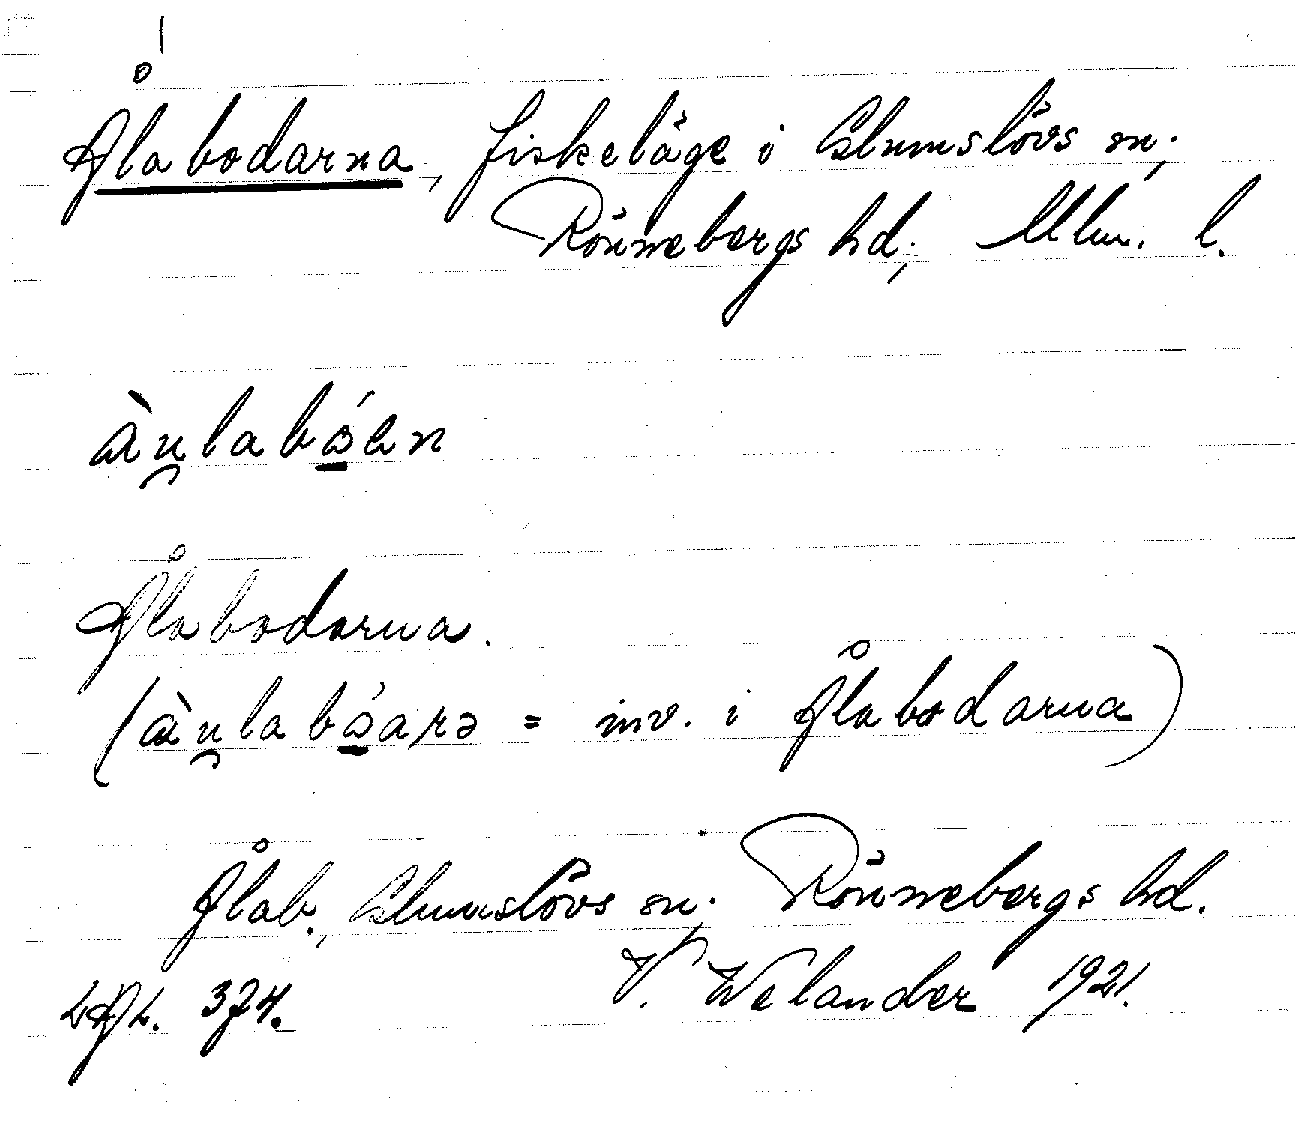 Ålabodarna, fiskeläge i Glumslövs sn;
Rönnebergs hd; Mlm. l.
àu̯labóen
Ålabodarna.
(àu̯labóarə = inv. i Ålabodarna)
Ålab., Glumslövs sn; Rönnebergs hd.
V. Welander 1921.
LAL. 374.